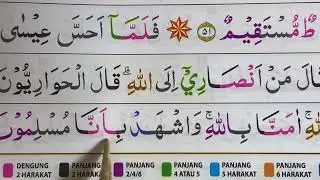 طٌ مُّسْتَقِيْمٌ ٥١ فَلَمَّآ اَحَسَّ عِيْسٰى
قَالَ مَنْ اَنْصَارِيْٓ اِلَى اللّٰهِ ۗ قَالَ الْحَوَارِيُّوْنَ
اللّٰهِ ۚ اٰمَنَّا بِاللّٰهِ ۚ وَاشْهَدْ بِاَنَّا مُسْلِمُوْنَ
DENGUNG 2 HARAKAT PANJANG 2 HARAKAT PANJANG 2/4/6 PANJANG 4 ATAU 5 PANJANG 5 HARAKAT PANJANG 6 HARAKAT